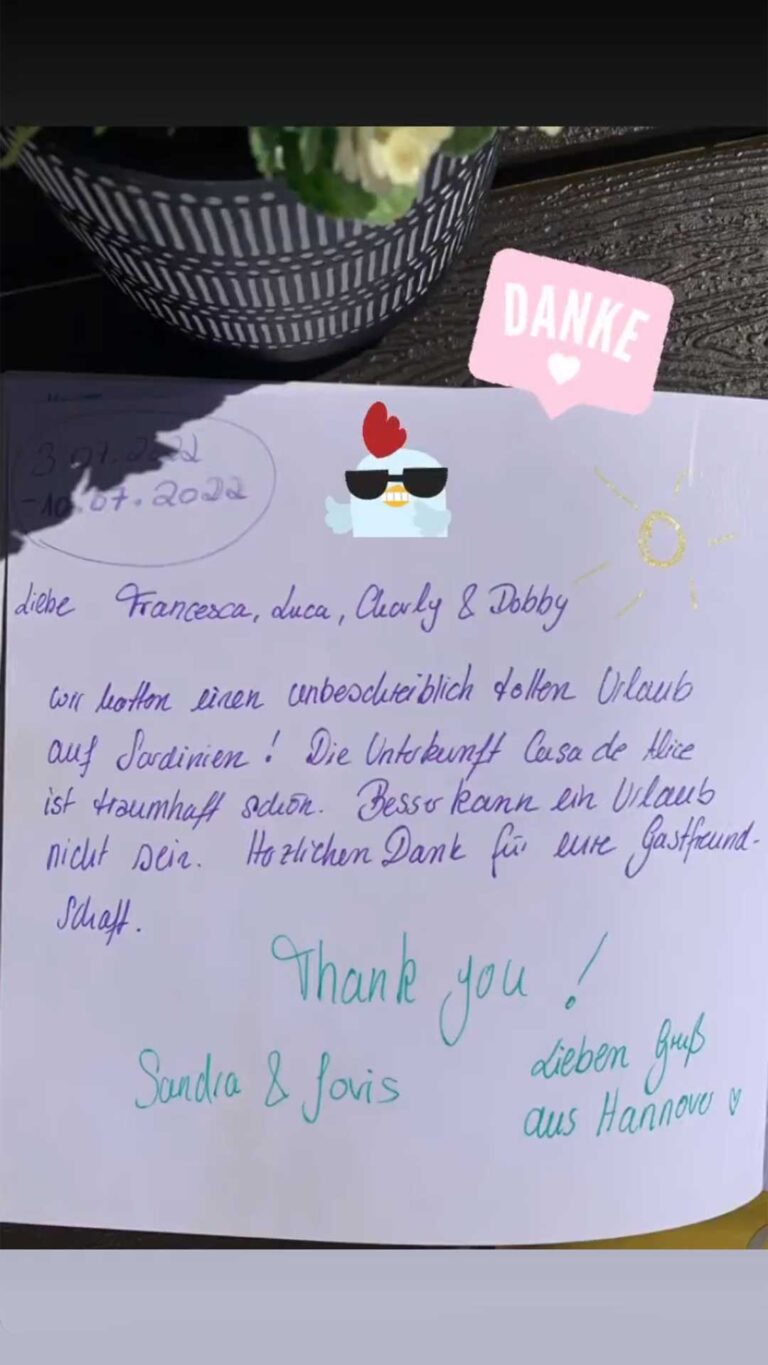 DANKE
3.07.2022
-10.07.2022
Liebe Francesca, Luca, Charly & Dobby
wir hatten einen unbeschreiblich tollen Urlaub
auf Sardinien! Die Unterkunft Casa de Alice
ist traumhaft schön. Besser kann ein Urlaub
nicht sein. Herzlichen Dank für eure Gastfreund-
schaft.
Thank you!
Sandra & Joris
Lieben Gruß
aus Hannover